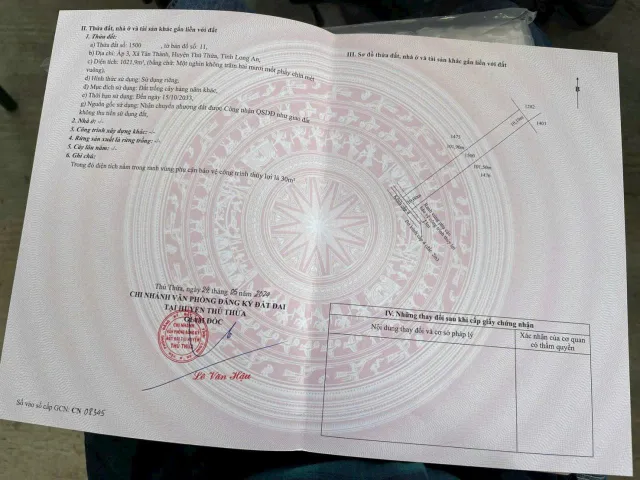 II. Thửa đất, nhà ở và tài sản khác gắn liền với đất
1. Thửa đất:
a) Thửa đất số: 1500 , tờ bản đồ số: 11,
b) Địa chỉ: Ấp 3, Xã Tân Thành, Huyện Thủ Thừa, Tỉnh Long An,
c) Diện tích: 1021,9m², (bằng chữ: Một nghìn không trăm hai mươi mốt phẩy chín mét
vuông),
d) Hình thức sử dụng: Sử dụng riêng,
đ) Mục đích sử dụng: Đất trồng cây hàng năm khác,
e) Thời hạn sử dụng: Đến ngày 15/10/2033,
g) Nguồn gốc sử dụng: Nhận chuyển nhượng đất được Công nhận QSDĐ như giao đất
không thu tiền sử dụng đất,
2. Nhà ở: -/-
3. Công trình xây dựng khác: -/-
4. Rừng sản xuất là rừng trồng: -/-
5. Cây lâu năm: -/-
6. Ghi chú:
Trong đó diện tích nằm trong ranh vùng phụ cận bảo vệ công trình thủy lợi là 30m²
Thủ Thừa, ngày 28 tháng 05 năm 2024
CHI NHÁNH VĂN PHÒNG ĐĂNG KÝ ĐẤT ĐAI
TẠI HUYỆN THỦ THỪA
GIÁM ĐỐC
CHI NHÁNH
VĂN PHÒNG ĐĂNG KÝ
ĐẤT ĐAI TẠI HUYỆN
THỦ THỪA
Lê Văn Hậu
Số vào sổ cấp GCN: CN 08345
III. Sơ đồ thửa đất, nhà ở và tài sản khác gắn liền với đất
B
1473
1500
1476
1403
IV. Những thay đổi sau khi cấp giấy chứng nhận
Nội dung thay đổi và cơ sở pháp lý
Xác nhận của cơ quan
có thẩm quyền